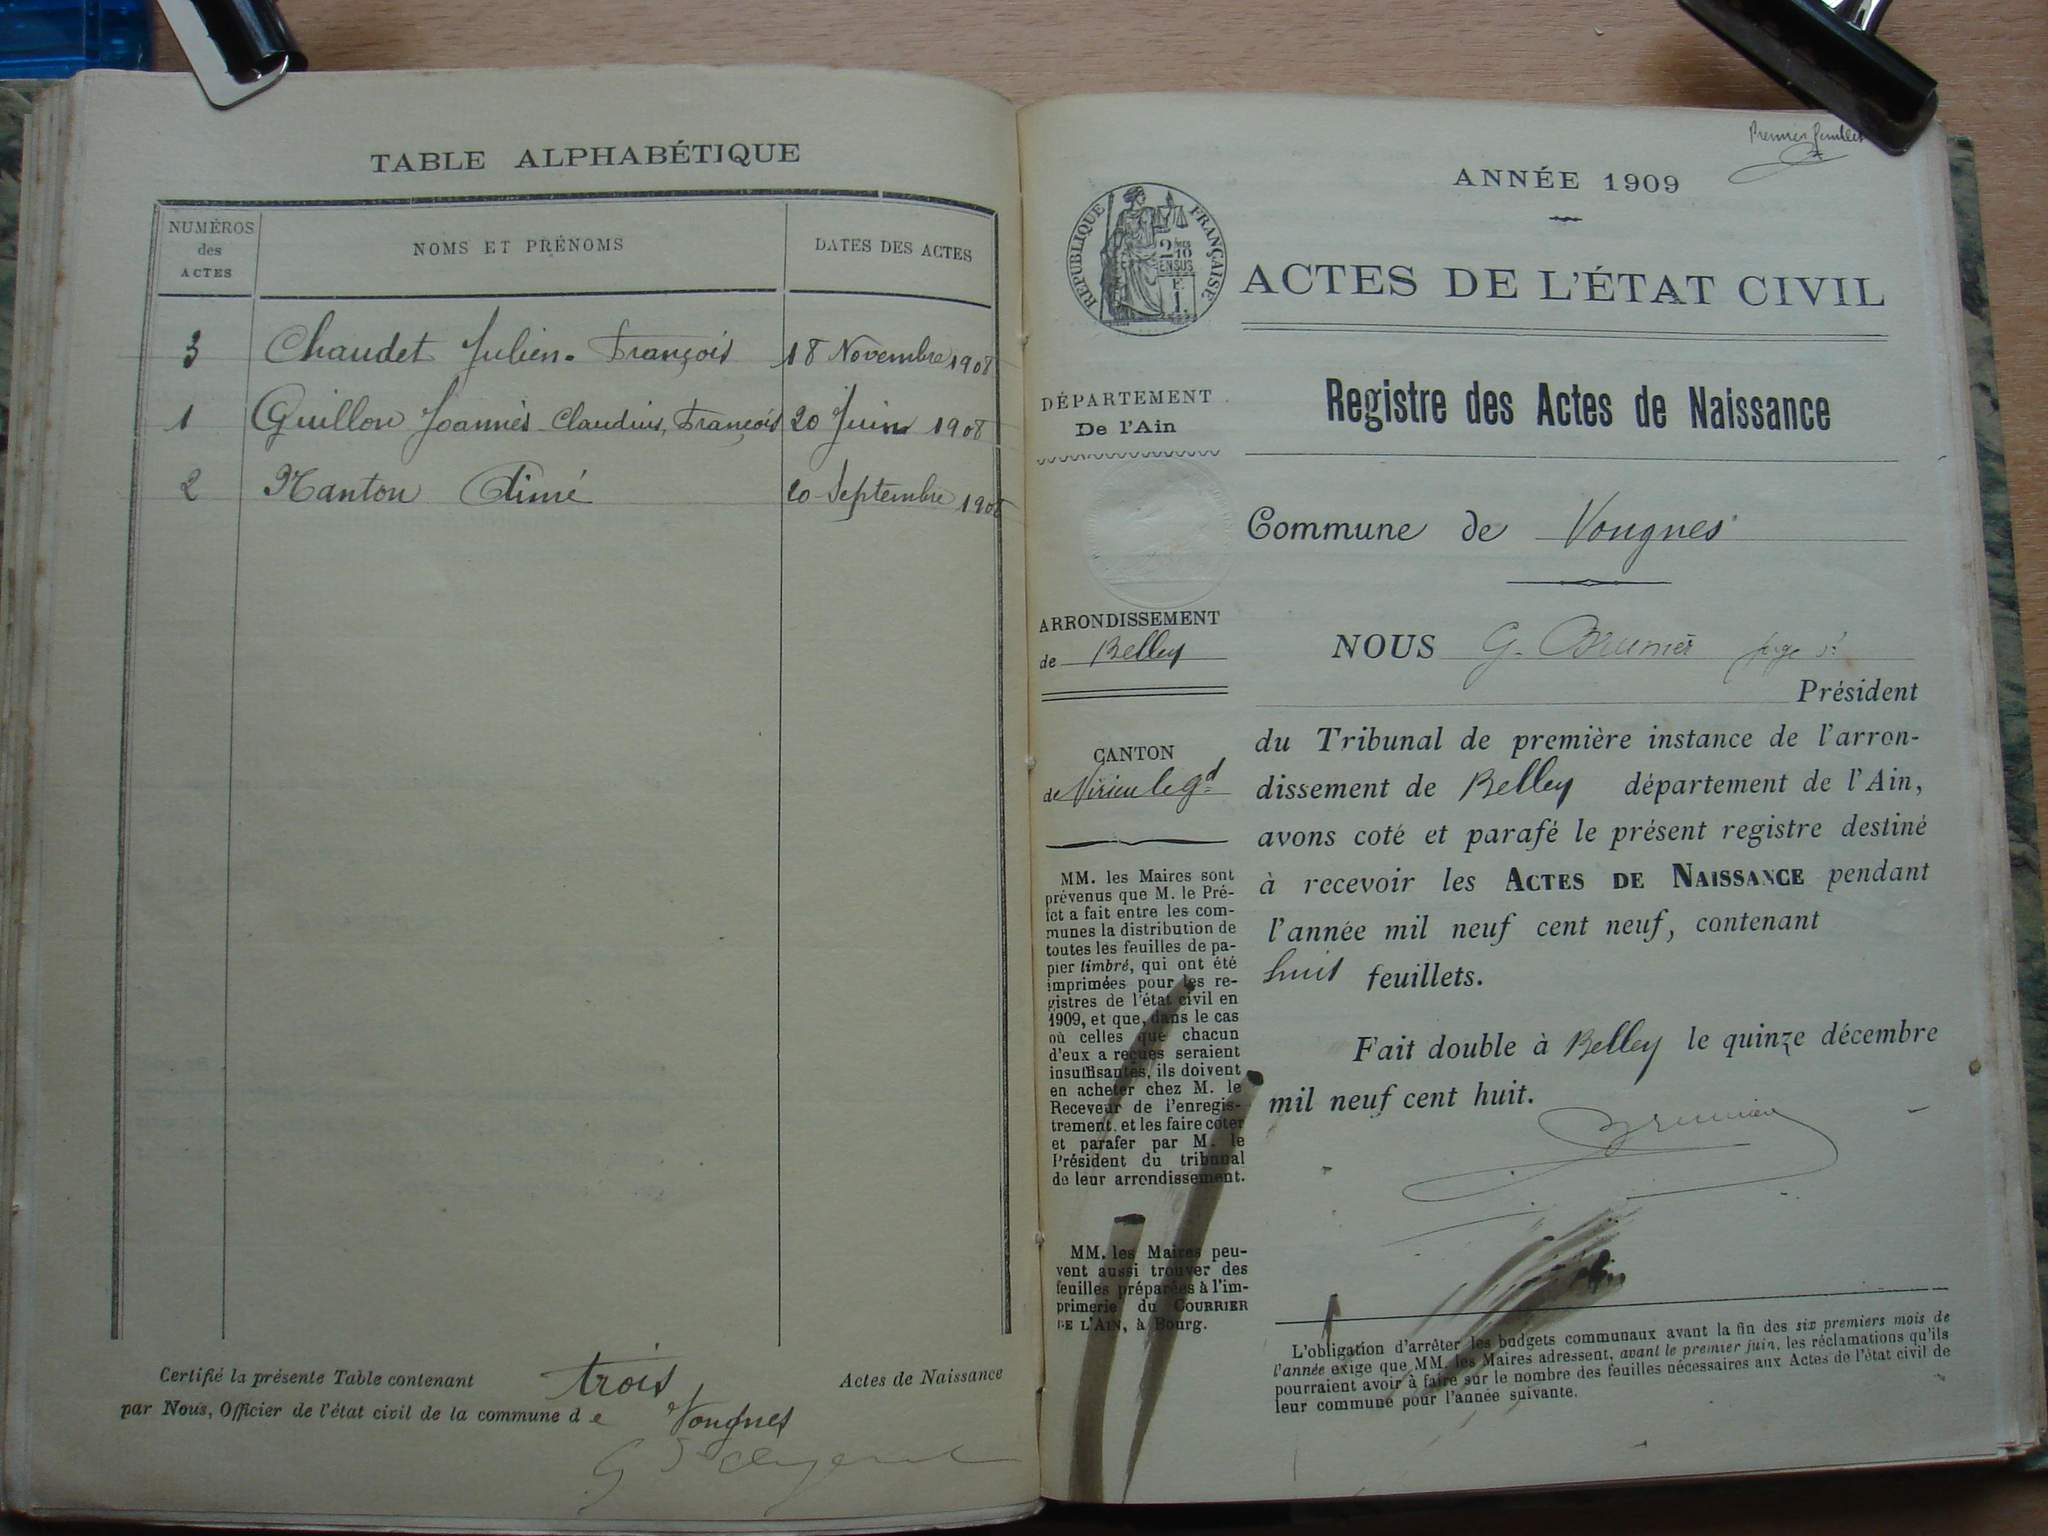 TABLE ALPHABÉTIQUE
NUMÉROS
des
ACTES
NOMS ET PRÉNOMS
DATES DES ACTES
3 Chaudet Julien. François 18 Novembre 1908
1 Guillon Joannès Claudius, François 20 Juin 1908
2 Nanton Aimé 20 Septembre 1908
Certifié la présente Table contenant trois Actes de Naissance
par Nous, Officier de l'état civil de la commune de Vongnes
Premier feuillet
ANNÉE 1909
RÉPUBLIQUE FRANÇAISE
2/10
EN SUS
ACTES DE L'ÉTAT CIVIL
DÉPARTEMENT
De l'Ain
Registre des Actes de Naissance
Commune de Vongnes
ARRONDISSEMENT
de Belley
NOUS G. Brunier juge
Président
CANTON
de Virieu le Gd
du Tribunal de première instance de l'arron-
dissement de Belley département de l'Ain,
avons coté et parafé le présent registre destiné
à recevoir les ACTES DE NAISSANCE pendant
l'année mil neuf cent neuf, contenant
huit feuillets.
Fait double à Belley le quinze décembre
mil neuf cent huit.
Brunier
MM. les Maires sont
prévenus que M. le Pré-
fet a fait entre les com-
munes la distribution de
toutes les feuilles de pa-
pier timbré, qui ont été
imprimées pour les re-
gistres de l'état civil en
1909, et que, dans le cas
où celles que chacun
d'eux a reçues seraient
insuffisantes, ils doivent
en acheter chez M. le
Receveur de l'enregis-
trement, et les faire coter
et parafer par M. le
Président du tribunal
de leur arrondissement.
MM. les Maires peu-
vent aussi trouver des
feuilles préparées à l'im-
primerie du COURRIER
DE L'AIN, à Bourg.
L'obligation d'arrêter les budgets communaux avant la fin des six premiers mois de
l'année exige que MM. les Maires adressent, avant le premier juin, les réclamations qu'ils
pourraient avoir à faire sur le nombre des feuilles nécessaires aux Actes de l'état civil de
leur commune pour l'année suivante.